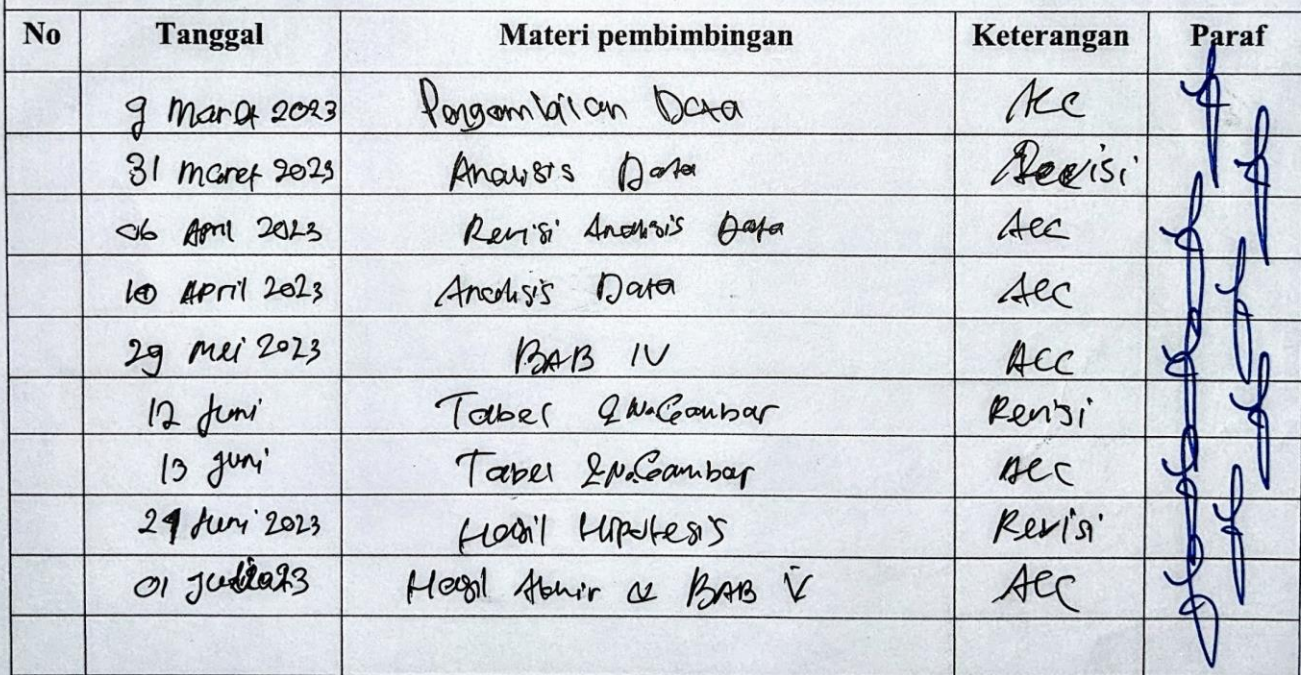 No Tanggal Materi pembimbingan Keterangan Paraf
9 Maret 2023 Pengambilan Data Acc
31 Maret 2023 Analisis Data Revisi
06 April 2023 Revisi Analisis Data Acc
10 April 2023 Analisis Data Acc
29 Mei 2023 BAB IV Acc
12 Juni Tabel & No.Gambar Revisi
13 Juni Tabel & No.Gambar Acc
Juni 2023 Hasil Hipotesis Revisi
01 2023 Hasil Akhir & BAB V Acc